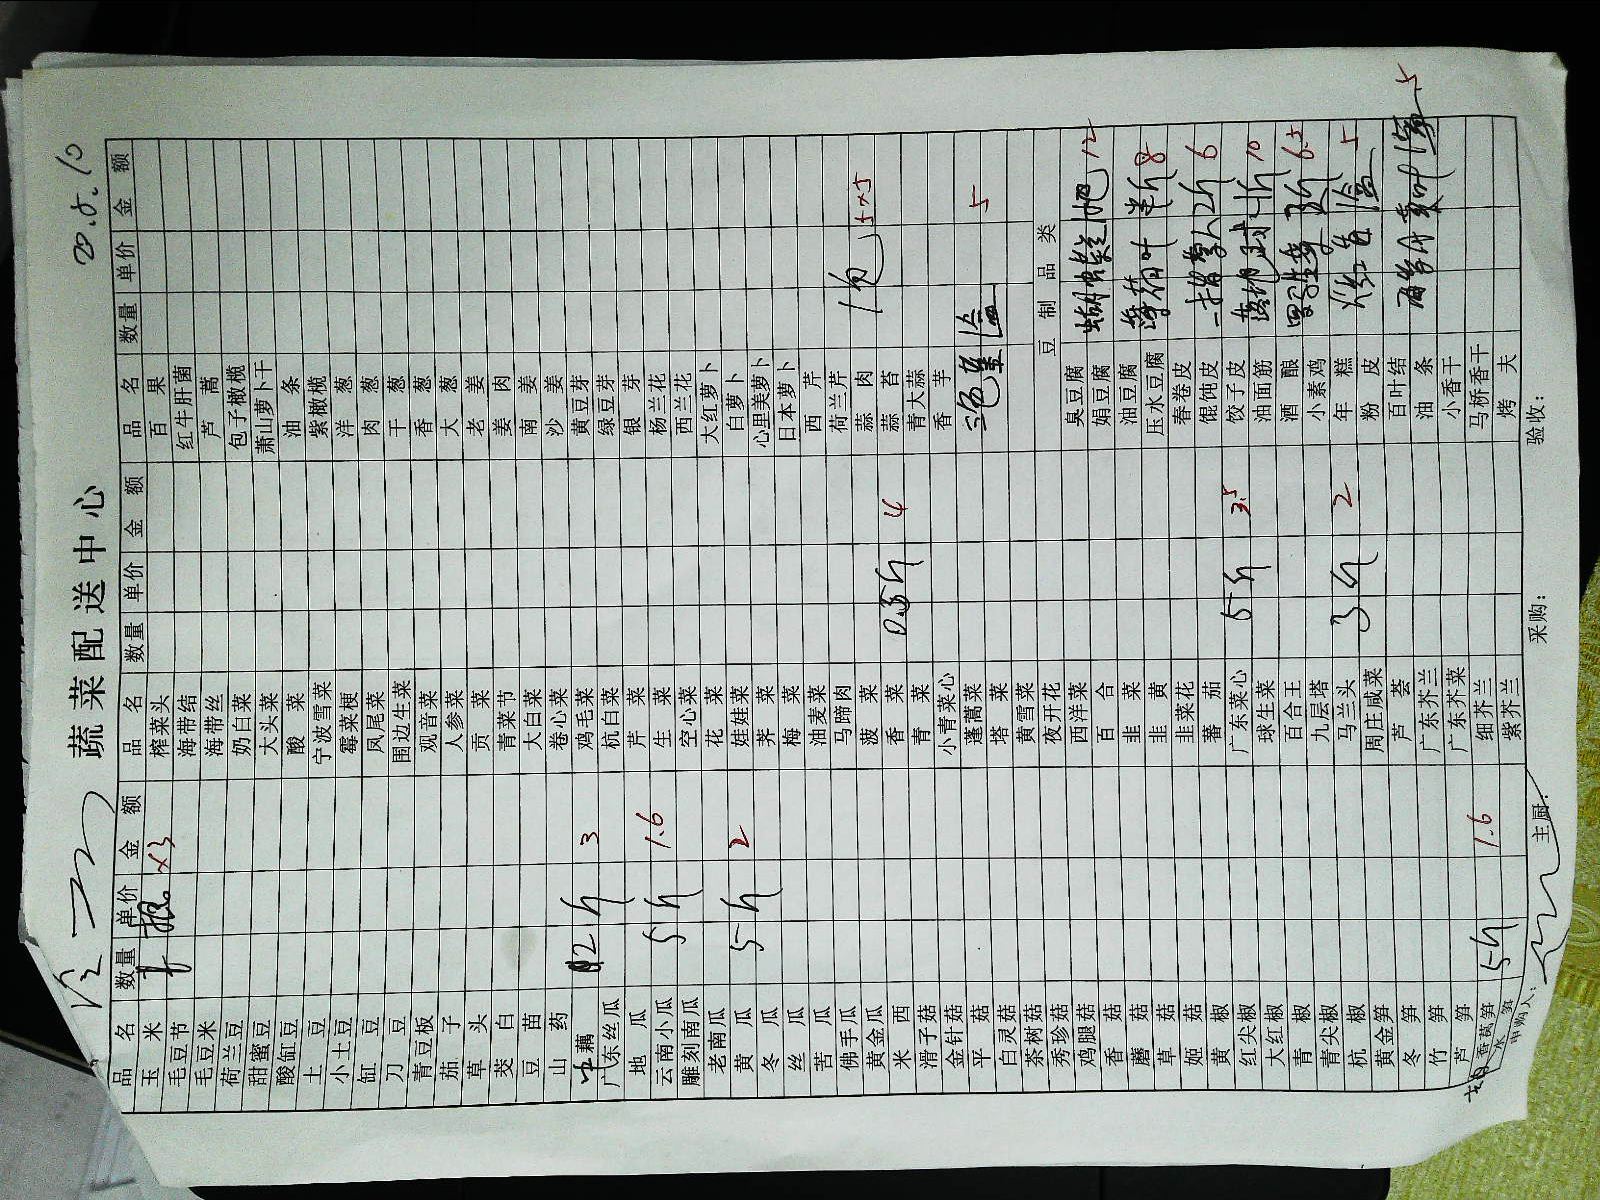 蔬菜配送中心
20.5.10
品名 数量 单价 金额 品名 数量 单价 金额 品名 数量 单价 金额
玉米 ×3 榨菜头 百果
毛豆节 海带结 红牛肝菌
毛豆米 海带丝 芦蒿
荷兰豆 奶白菜 包子橄榄
甜蜜豆 大头菜 萧山萝卜干
酸缸豆 酸菜 油条
土豆 宁波雪菜 紫橄榄
小土豆 霉菜梗 洋葱
缸豆 凤尾菜 肉葱
刀豆 围边生菜 干葱
青豆板 观音菜 香葱
茄子 人参菜 大葱
草头 贡菜 老姜
茭白 青菜节 姜肉
豆苗 大白菜 南姜
山药 卷心菜 沙姜
藕 2斤 3 鸡毛菜 黄豆芽
广东丝瓜 杭白菜 绿豆芽
地瓜 芹菜 银芽
云南小瓜 5斤 1.6 生菜 杨兰花
雕刻南瓜 空心菜 西兰花
老南瓜 花菜 大红萝卜
黄瓜 5斤 2 娃娃菜 白萝卜
冬瓜 荠菜 心里美萝卜
丝瓜 梅菜 日本萝卜
苦瓜 油麦菜 西芹
佛手瓜 马蹄肉 荷兰芹
黄金瓜 菠菜 蒜肉 1包 5×5
米西 香菜 0.5斤 4 蒜苔
滑子菇 青菜 青大蒜
金针菇 小青菜心 香芋
平菇 蓬蒿菜 三色堇 1盒 5
白灵菇 塔菜
茶树菇 黄雪菜 豆制品类
秀珍菇 夜开花 臭豆腐
鸡腿菇 西洋菜 娟豆腐 12
香菇 百合 油豆腐
蘑菇 韭菜 压水豆腐 薄荷叶 半斤 8
草菇 韭黄 春卷皮
姬菇 韭菜花 馄饨皮 2斤 6
黄椒 蕃茄 饺子皮
红尖椒 广东菜心 5斤 3.5 油面筋 10
大红椒 球生菜 酒酿
青椒 百合王 小素鸡 6.5
青尖椒 九层塔 年糕
杭椒 马兰头 3斤 2 粉皮 1盒 5
黄金笋 周庄咸菜 百叶结
冬笋 芦荟 油条 5
竹笋 广东芥兰 小香干
芦笋 广东芥菜 马桥香干
香莴笋 5斤 1.6 细芥兰 烤夫
水笋 紫芥兰
申购人： 主厨： 采购： 验收：